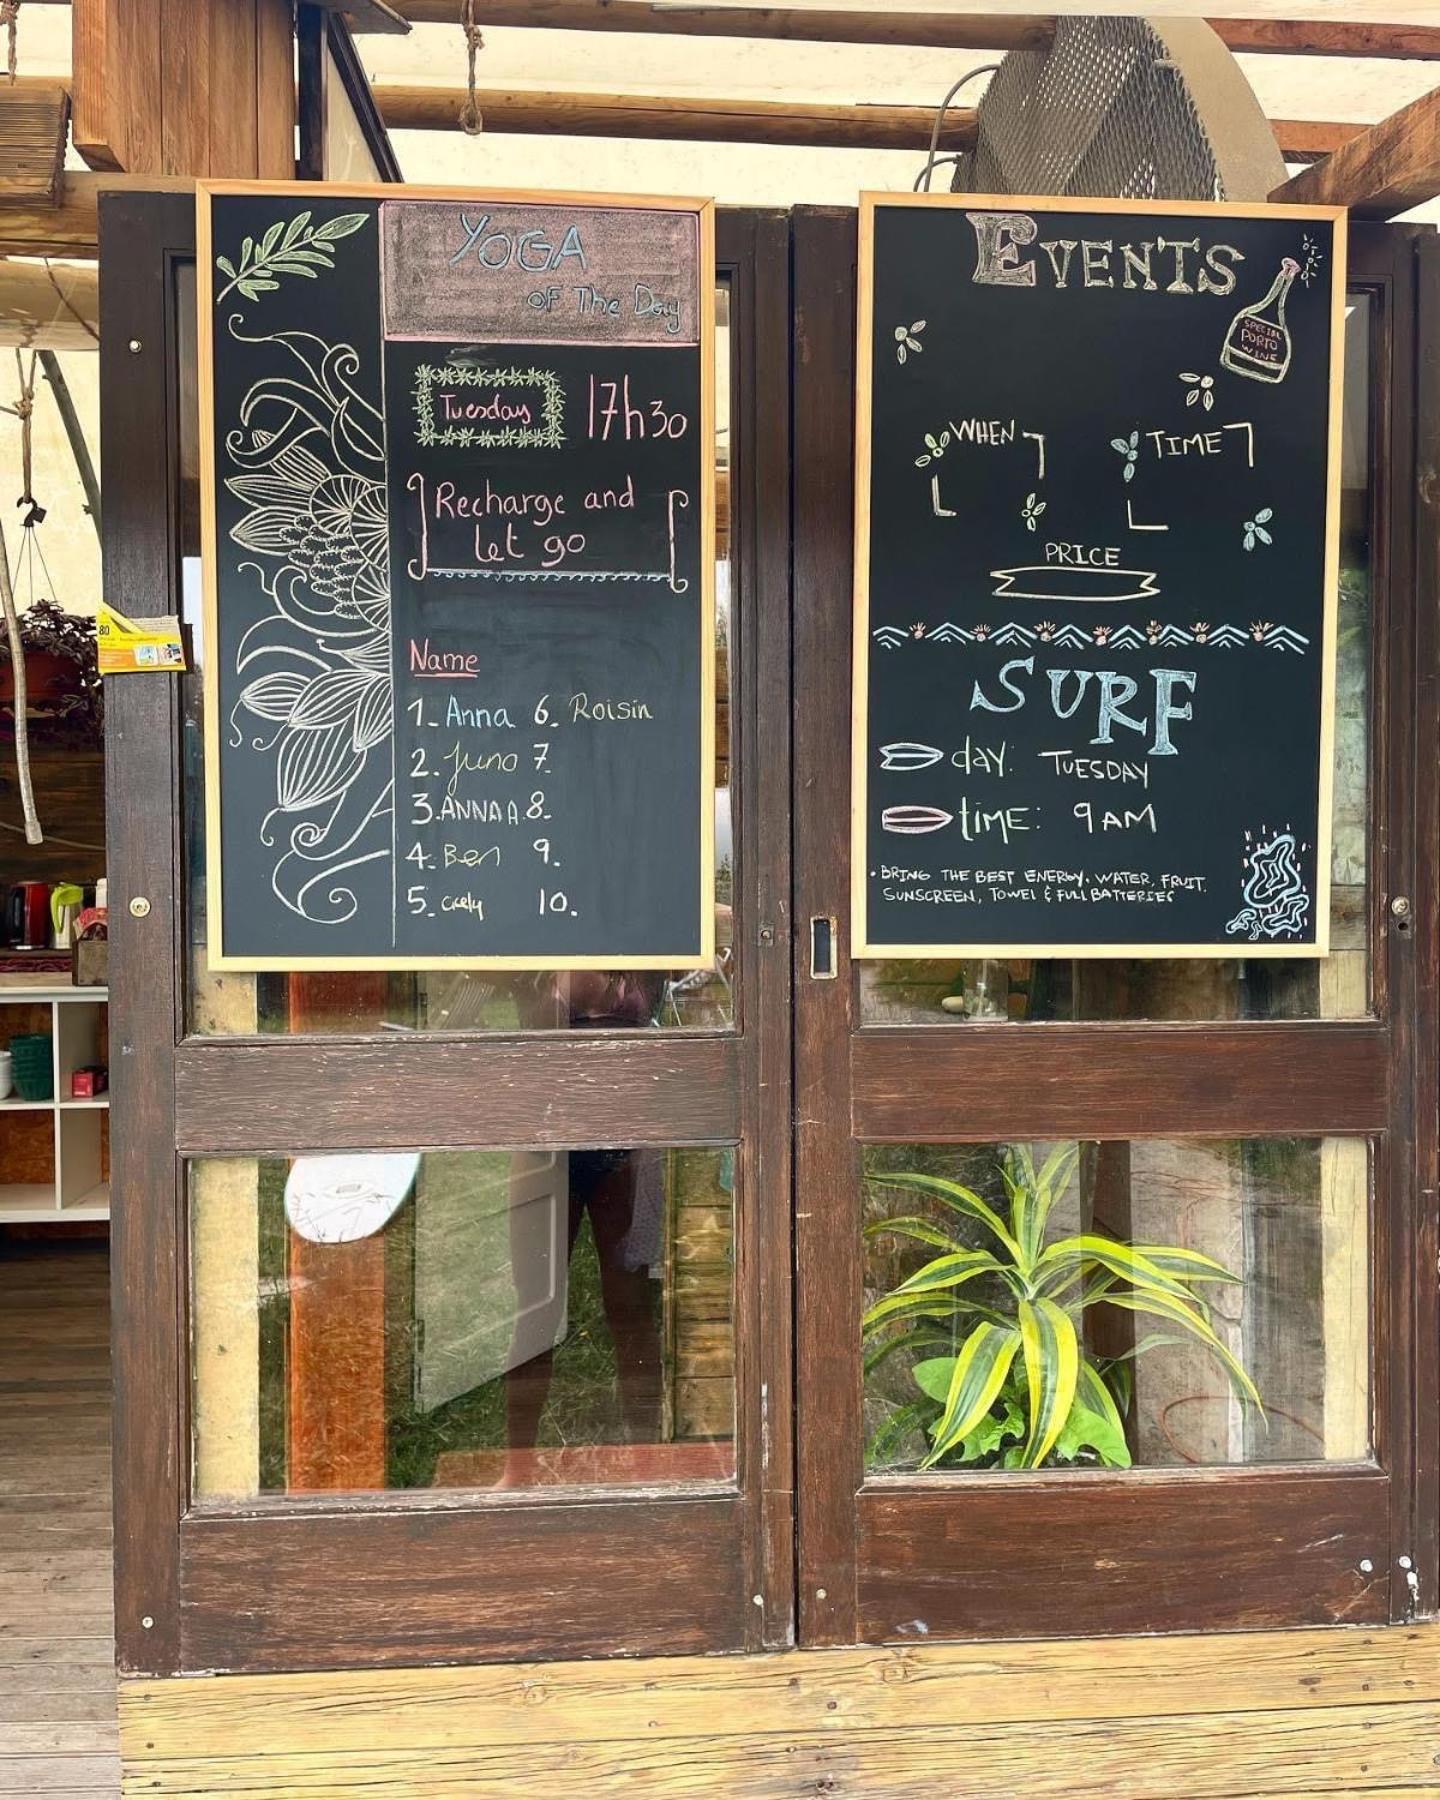 YOGA
of The Day
Tuesday 17h30
Recharge and
let go
Name
1. Anna 6. Roisin
2. Juno 7.
3. ANNA A. 8.
4. Ben 9.
5. cicely 10.
80
EVENTS
SPECIAL
PORTO
WINE
WHEN TIME
PRICE
SURF
day: TUESDAY
time: 9AM
• BRING THE BEST ENERGY, WATER, FRUIT,
SUNSCREEN, TOWEL & FULL BATTERIES